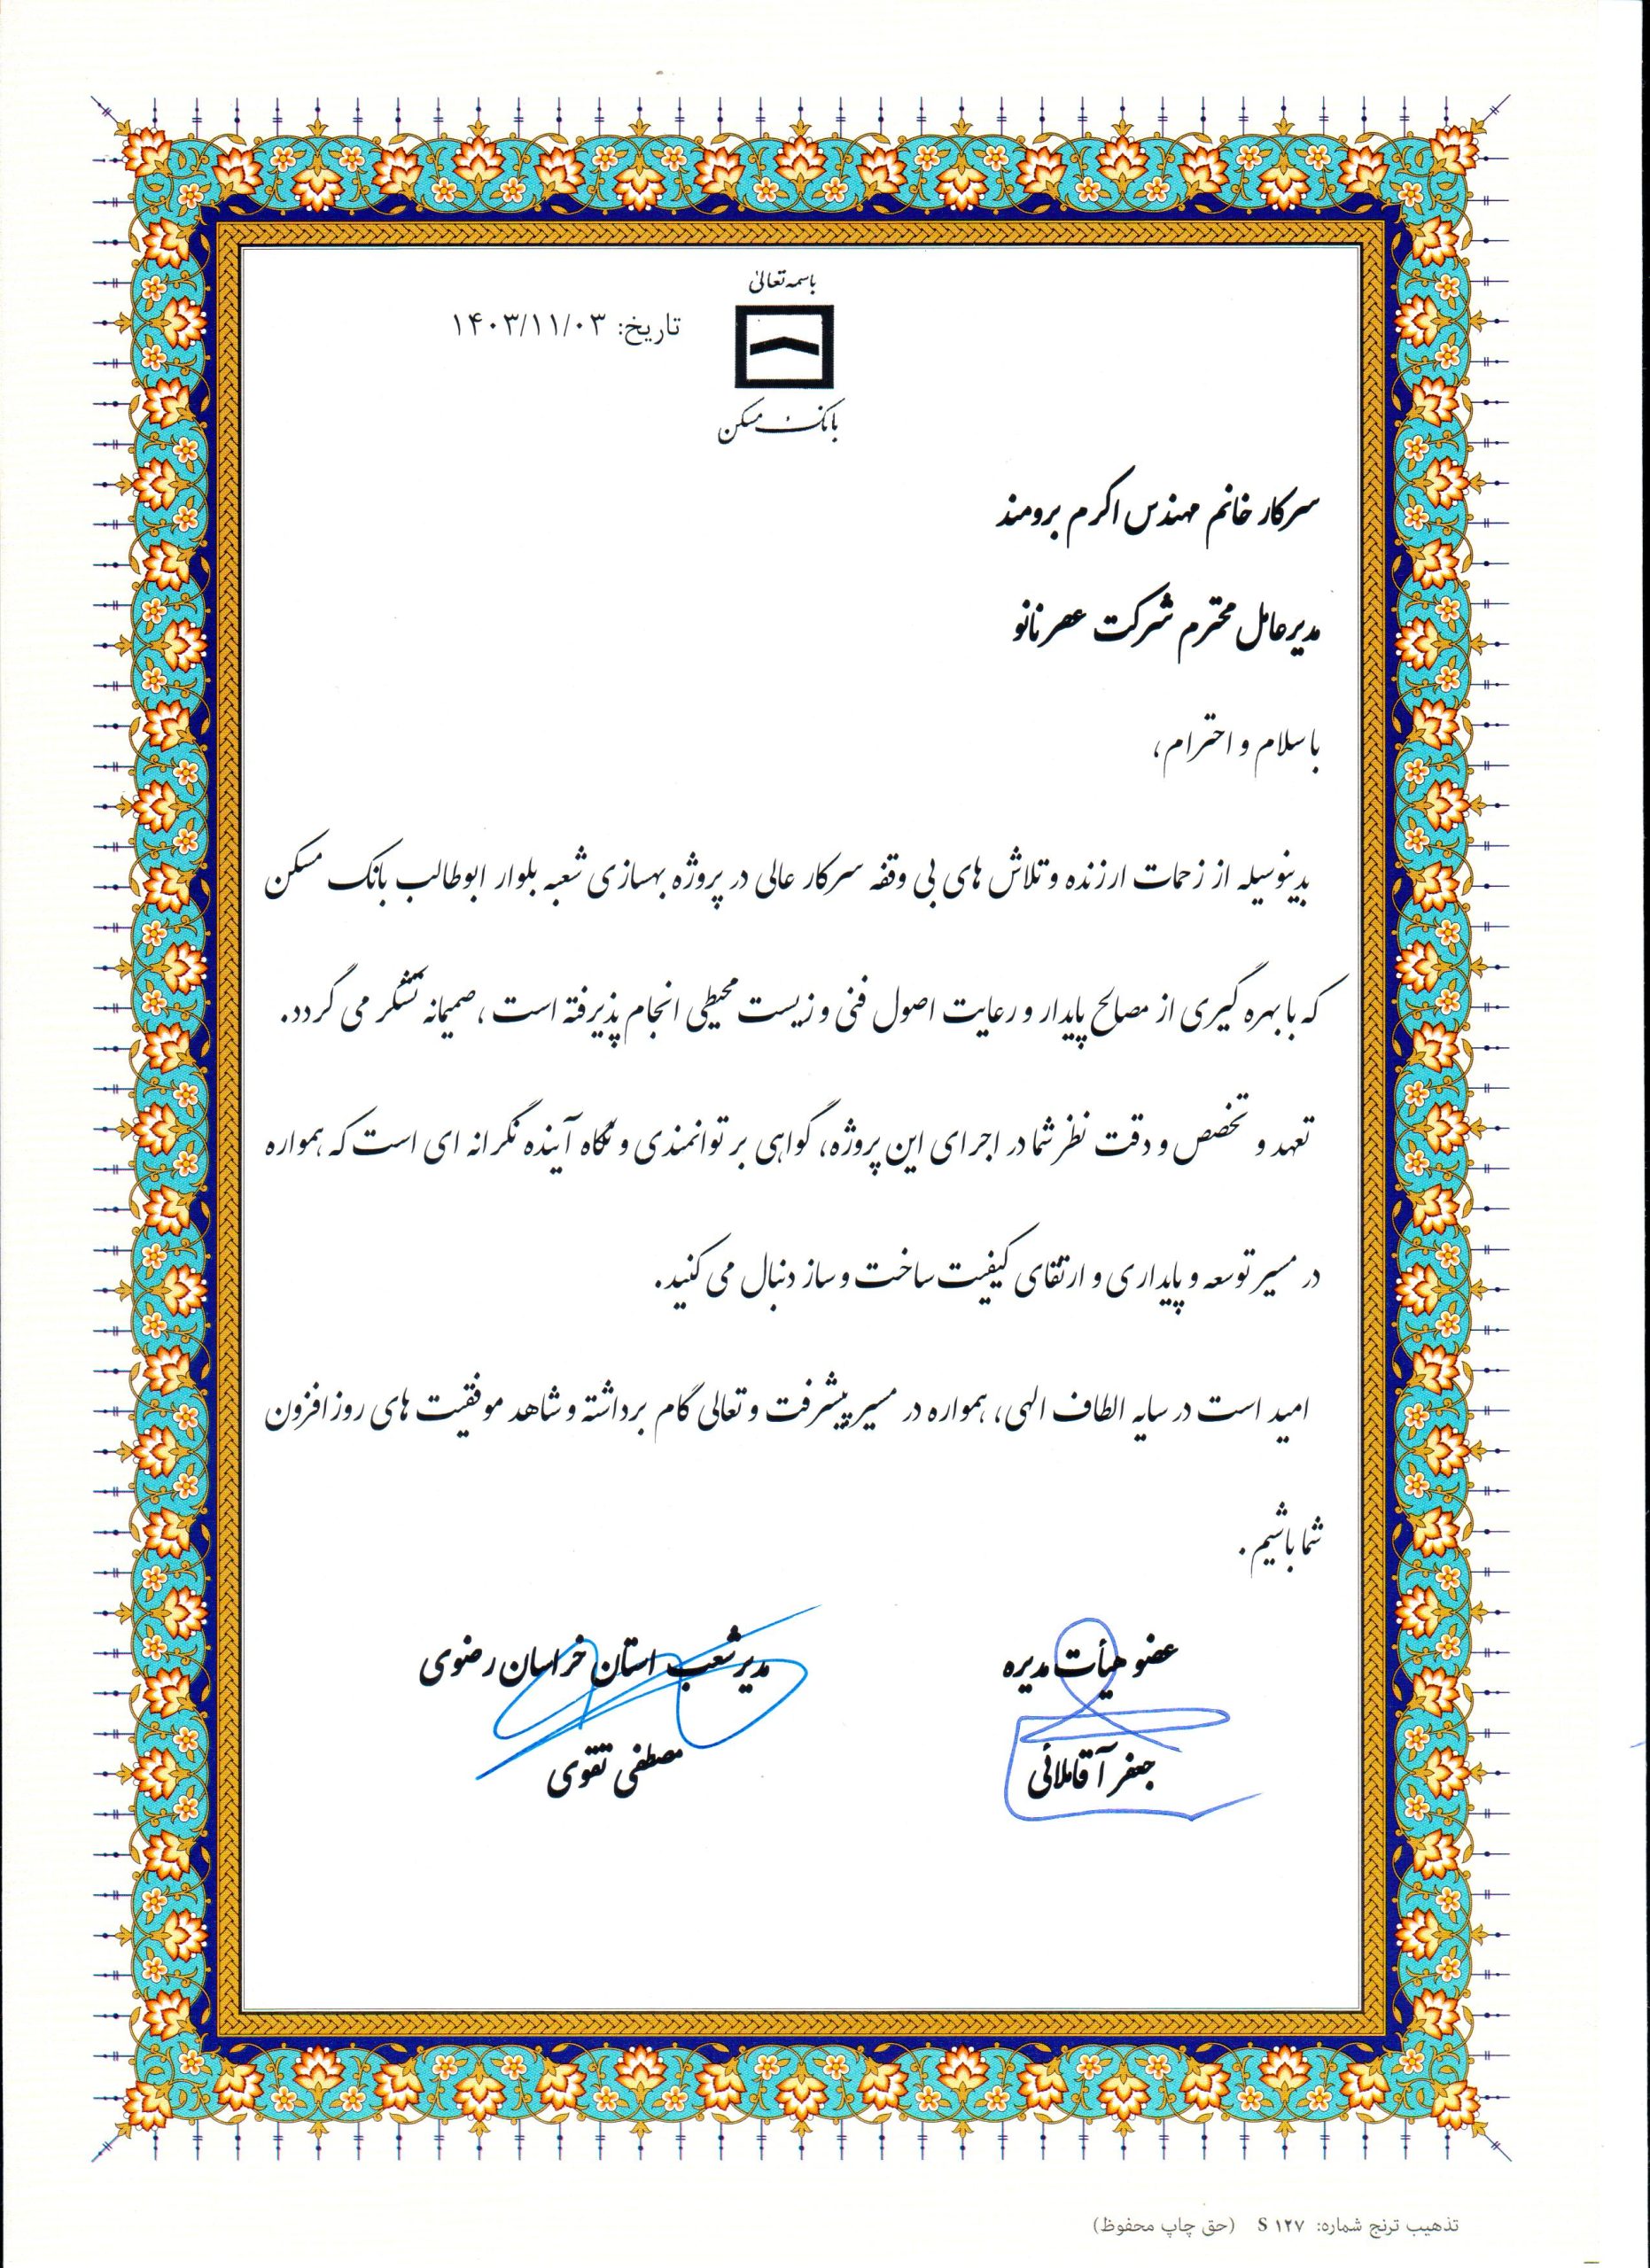 باسمه تعالیٰ
تاریخ: ۱۴۰۳/۱۱/۰۳
بانک مسکن
سرکار خانم مهندس اکرم برومند
مدیرعامل محترم شرکت عصر نانو
با سلام و احترام،
بدینوسیله از زحمات ارزنده و تلاش های بی وقفه سرکار عالی در پروژه بهسازی شعبه بلوار ابوطالب بانک مسکن
که با بهره گیری از مصالح پایدار و رعایت اصول فنی و زیست محیطی انجام پذیرفته است، صمیمانه تشکر می گردد.
تعهد و تخصص و دقت نظر شما در اجرای این پروژه، گواهی بر توانمندی و نگاه آینده نگرانه ای است که همواره
در مسیر توسعه و پایداری و ارتقای کیفیت ساخت و ساز دنبال می کنید.
امید است در سایه الطاف الهی، همواره در مسیر پیشرفت و تعالی گام برداشته و شاهد موفقیت های روز افزون
شما باشیم.
عضو هیأت مدیره
جعفر آقاملائی
مدیر شعب استان خراسان رضوی
مصطفی تقوی
تذهیب ترنج شماره: S ۱۲۷ (حق چاپ محفوظ)